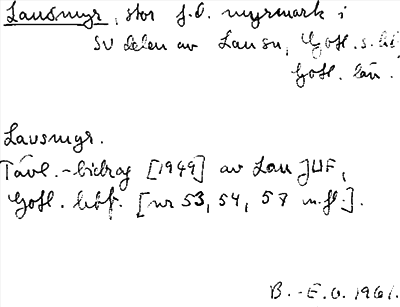 Lausmyr, stor f.d. myrmark i
SV delen av Lau sn, Gotl. s. hd,
Gotl. län.
Lausmyr.
Tävl.-bidrag [1949] av Lau JUF,
Gotl. hbf. [nr 53, 54, 58 m.fl.].
B.-E.O. 1961.